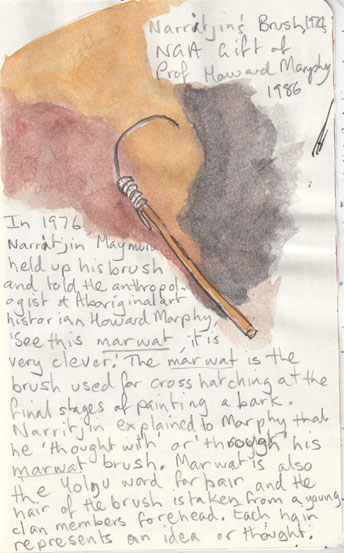 Narratjin's Brush, 1974,
NGA Gift of
Prof Howard Morphy
1986
In 1976,
Narratjin Maymuru
held up his brush
and told the anthropol-
ogist & Aboriginal art
historian Howard Morphy,
'See this marwat, it is
very clever.' The marwat is the
brush used for cross hatching at the
final stages of painting a bark.
Narritjin explained to Morphy that
he 'thought with' or 'through' his
marwat brush. Marwat is also
the Yolgu word for pair and the
hair of the brush is taken from a young
clan members forehead. Each hair
represents an idea or thought.